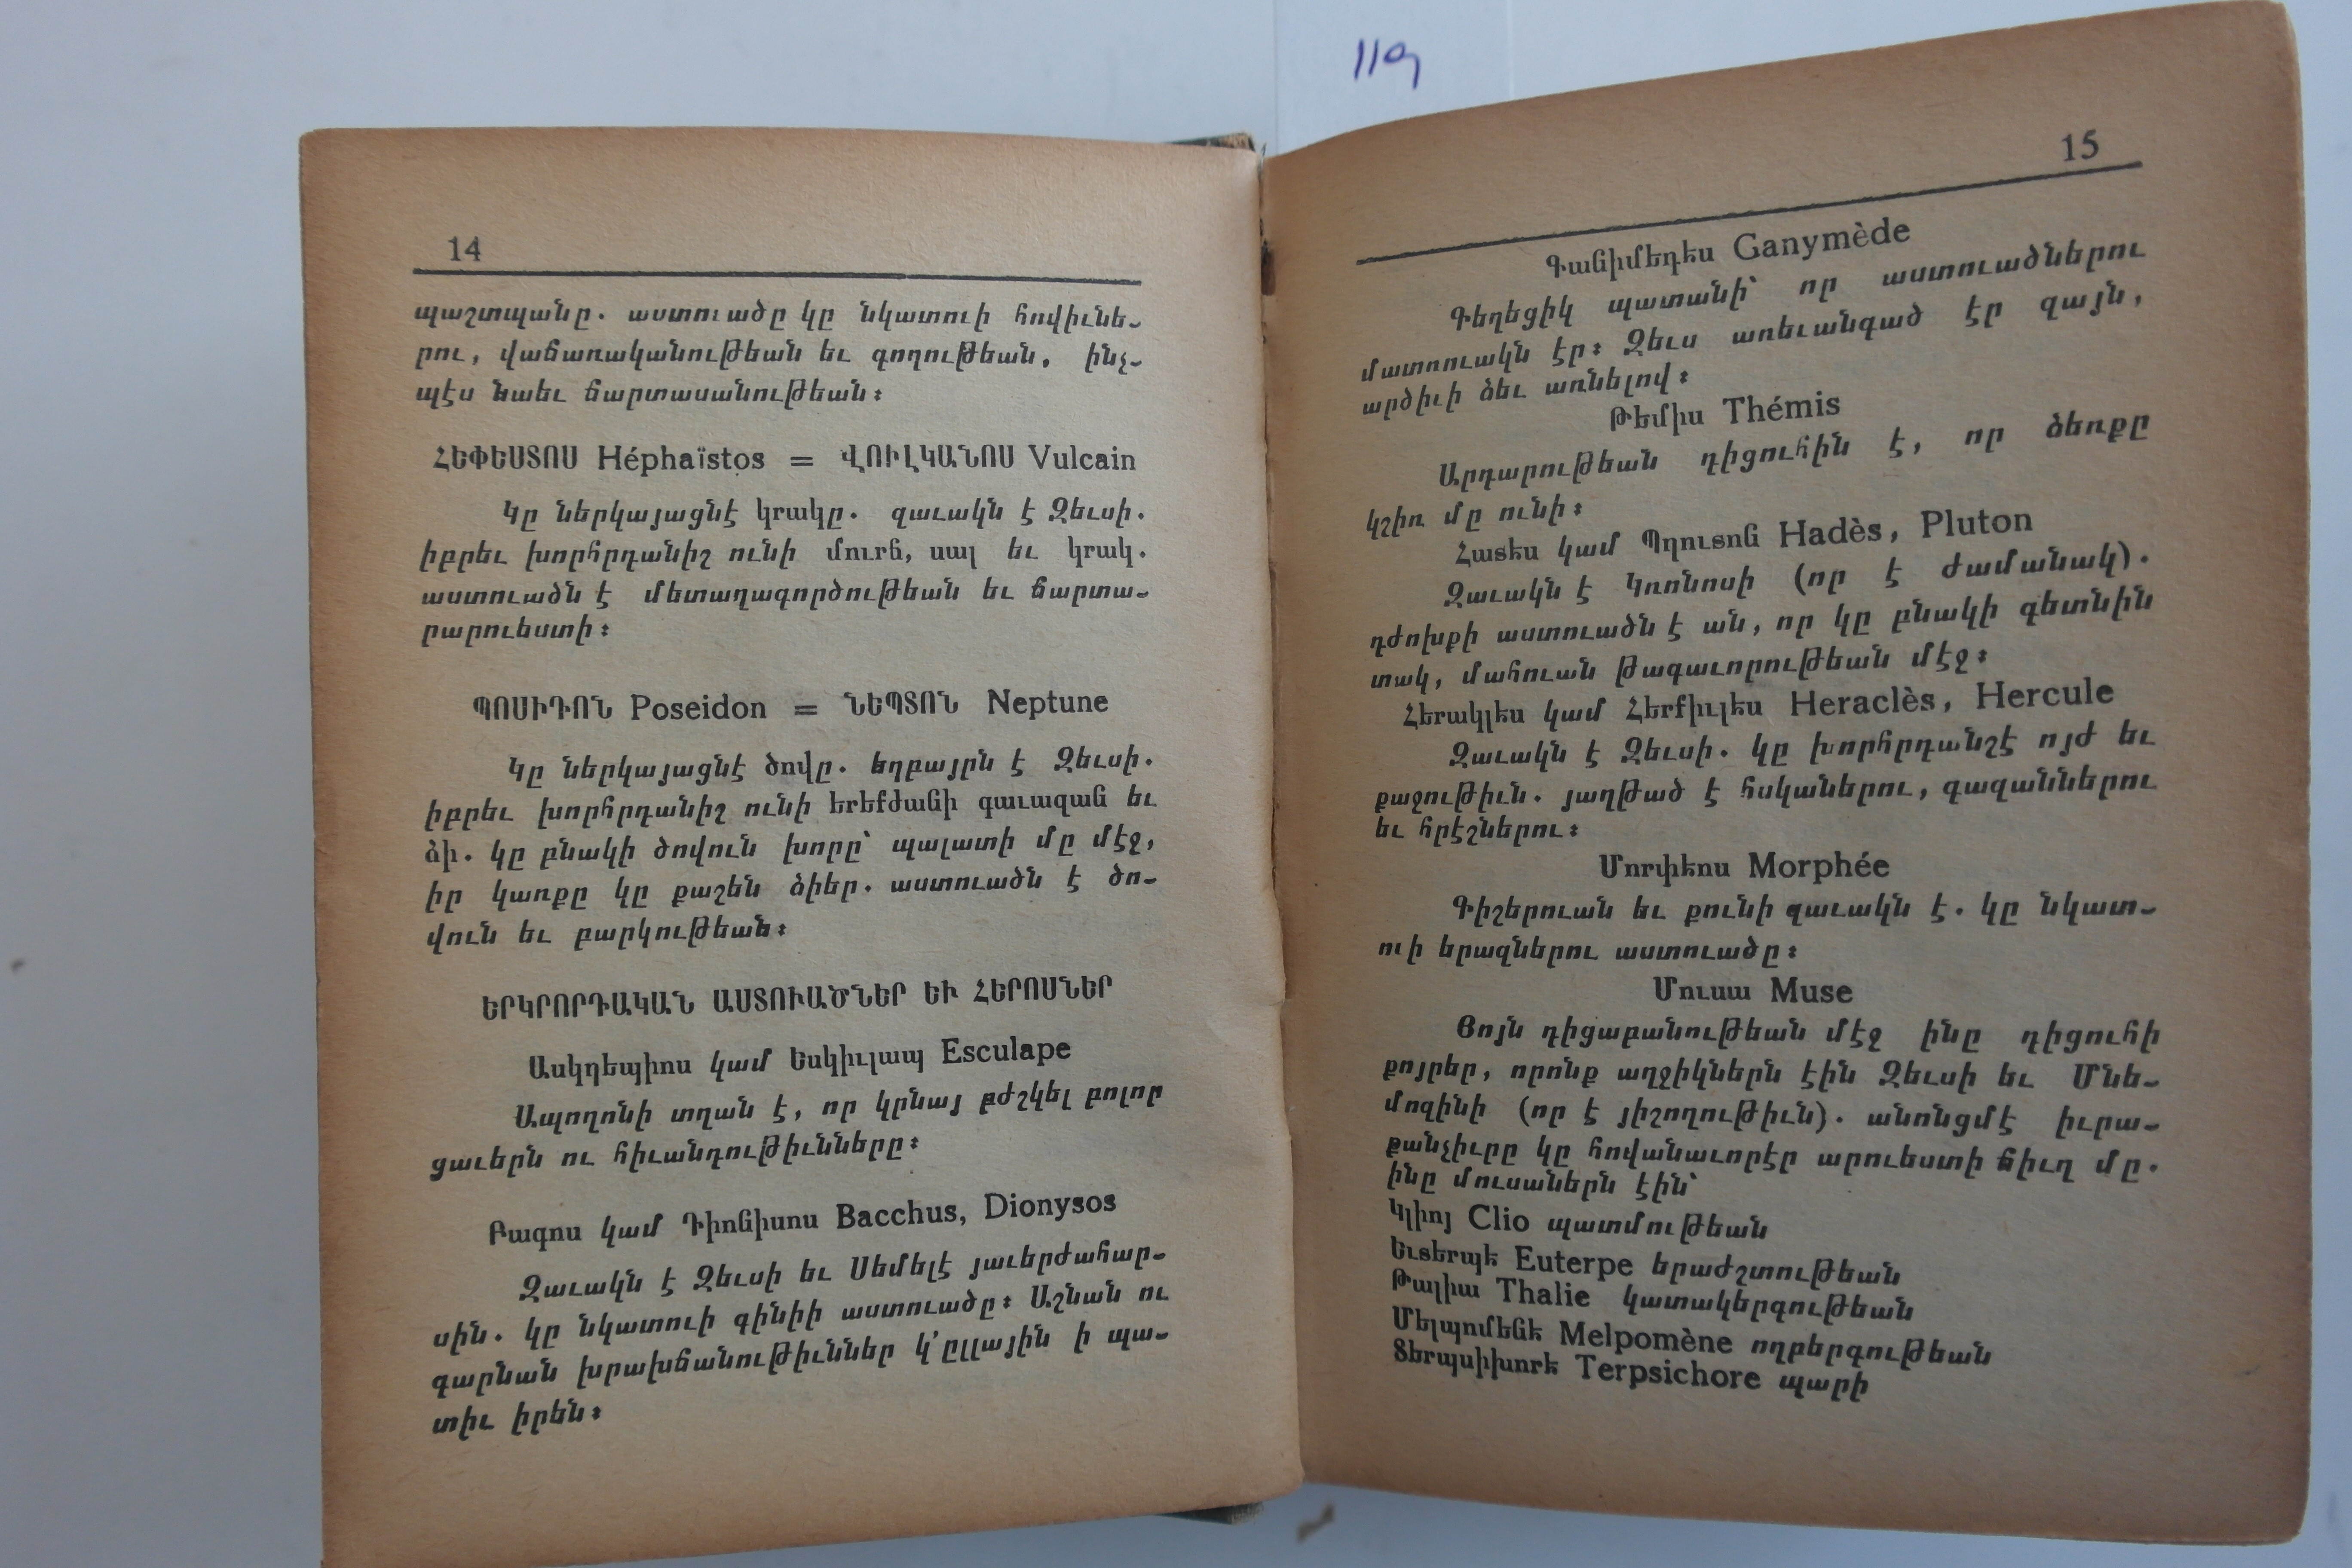 119
14
պաշտպանը. աստուածը կը նկատուի հովիւնե-
րու, վաճառականութեան եւ գողութեան, ինչ-
պէս նաեւ ճարտասանութեան։
ՀԵՓԵՍՏՈՍ Héphaïstos = ՎՈՒԼԿԱՆՈՍ Vulcain
Կը ներկայացնէ կրակը. զաւակն է Զեւսի.
իբրեւ խորհրդանիշ ունի մուրճ, սալ եւ կրակ.
աստուածն է մետաղագործութեան եւ ճարտա-
րարուեստի։
ՊՈՍԻԴՈՆ Poseidon = ՆԵՊՏՈՆ Neptune
Կը ներկայացնէ ծովը. եղբայրն է Զեւսի.
իբրեւ խորհրդանիշ ունի երեքժանի գաւազան եւ
ձի. կը բնակի ծովուն խորը՝ պալատի մը մէջ,
իր կառքը կը քաշեն ձիեր. աստուածն է ծո-
վուն եւ բարկութեան։
ԵՐԿՐՈՐԴԱԿԱՆ ԱՍՏՈՒԱԾՆԵՐ ԵՒ ՀԵՐՈՍՆԵՐ
Ասկղեպիոս կամ Եսկիւլապ Esculape
Ապողոնի տղան է, որ կրնայ բժշկել բոլոր
ցաւերն ու հիւանդութիւնները։
Բագոս կամ Դիոնիսոս Bacchus, Dionysos
Զաւակն է Զեւսի եւ Սեմելէ յաւերժահար-
սին. կը նկատուի գինիի աստուածը։ Աշնան ու
գարնան խրախճանութիւններ կ՚ըլլային ի պա-
տիւ իրեն։
15
Գանիմեդես Ganymède
Գեղեցիկ պատանի՝ որ աստուածներու
մատռուակն էր։ Զեւս առեւանգած էր զայն,
արծիւի ձեւ առնելով։
Թեմիս Thémis
Արդարութեան դիցուհին է, որ ձեռքը
կշիռ մը ունի։
Հատես կամ Պղուտոն Hadès, Pluton
Զաւակն է Կռոնոսի (որ է ժամանակ).
դժոխքի աստուածն է ան, որ կը բնակի գետնին
տակ, մահուան թագաւորութեան մէջ։
Հերակլես կամ Հերքիւլես Heraclès, Hercule
Զաւակն է Զեւսի. կը խորհրդանշէ ոյժ եւ
քաջութիւն. յաղթած է հսկաներու, գազաններու
եւ հրէշներու։
Մորփեոս Morphée
Գիշերուան եւ քունի զաւակն է. կը նկատ-
ուի երազներու աստուածը։
Մուսա Muse
Յոյն դիցաբանութեան մէջ ինը դիցուհի
քոյրեր, որոնք աղջիկներն էին Զեւսի եւ Մնե-
մոզինի (որ է յիշողութիւն). անոնցմէ իւրա-
քանչիւրը կը հովանաւորէր արուեստի ճիւղ մը.
ինը մուսաներն էին՝
Կլիոյ Clio պատմութեան
Եւտերպե Euterpe երաժշտութեան
Թալիա Thalie կատակերգութեան
Մելպոմենե Melpomène ողբերգութեան
Տերպսիխորե Terpsichore պարի